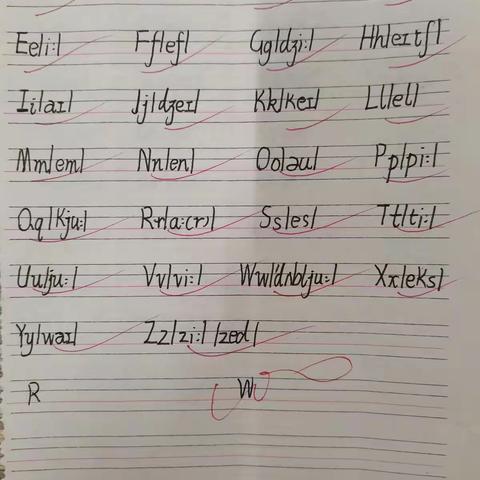 Ee/i:/ Ff/ef/ Gg/dʒi:/ Hh/eɪtʃ/
Ii/aɪ/ Jj/dʒeɪ/ Kk/keɪ/ Ll/el/
Mm/em/ Nn/en/ Oo/əu/ Pp/pi:/
Qq/kju:/ Rr/a:(r)/ Ss/es/ Tt/ti:/
Uu/ju:/ Vv/vi:/ Ww/'dʌblju:/ Xx/eks/
Yy/waɪ/ Zz/zi:/ /zed/
R W